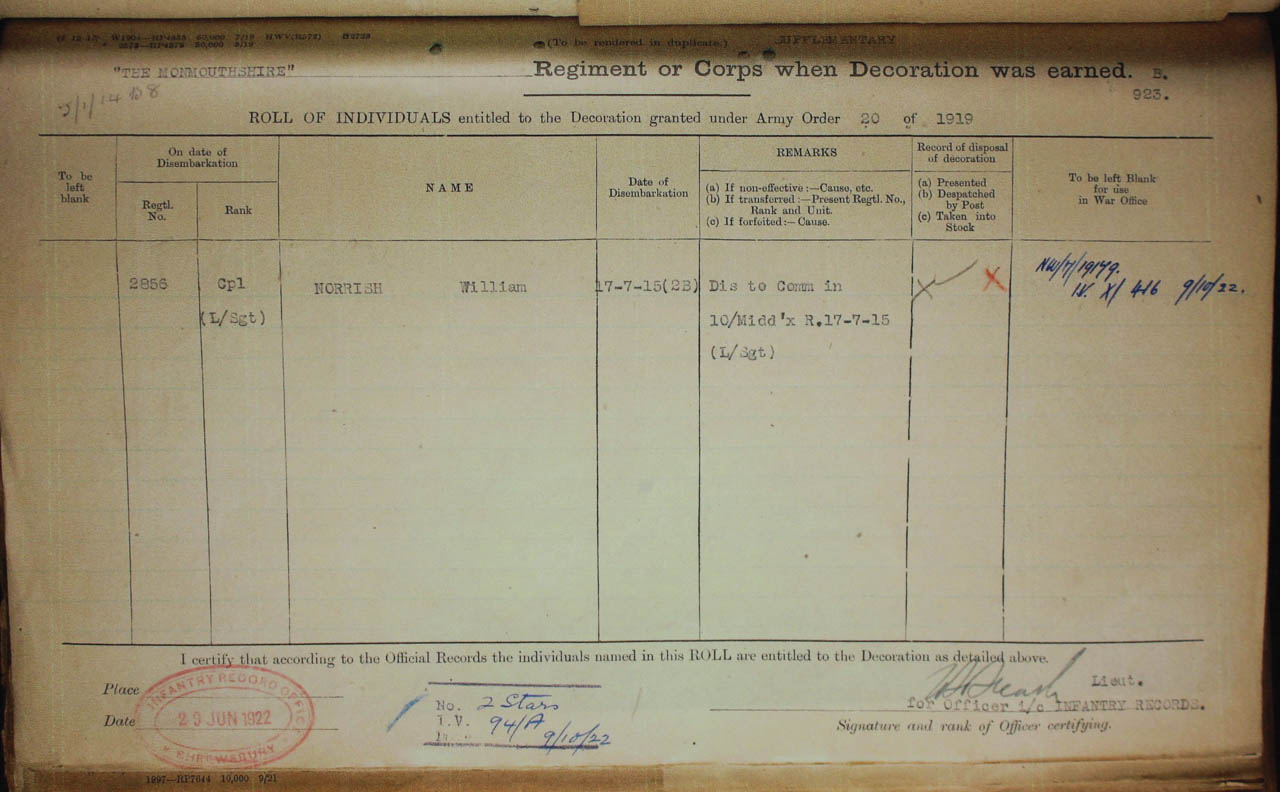 W1904—RP4853 60,000 7/19 HWV(R572)
50,000 9/19
(To be rendered in duplicate.) SUPPLEMENTARY
"THE MONMOUTHSHIRE" Regiment or Corps when Decoration was earned. B.
923.
ROLL OF INDIVIDUALS entitled to the Decoration granted under Army Order 20 of 1919
To be left blank
On date of Disembarkation
Regtl. No.
Rank
NAME
Date of Disembarkation
REMARKS
(a) If non-effective :—Cause, etc.
(b) If transferred :—Present Regtl. No., Rank and Unit.
(c) If forfeited :— Cause.
Record of disposal of decoration
(a) Presented
(b) Despatched by Post
(c) Taken into Stock
To be left Blank for use in War Office
2856 Cpl NORRISH William 17-7-15(2B) Dis to Comm in X X
(L/Sgt) 10/Midd'x R.17-7-15
(L/Sgt)
NW/7/19179.
IV. X/ 416 9/10/22.
I certify that according to the Official Records the individuals named in this ROLL are entitled to the Decoration as detailed above.
Place
Date
INFANTRY RECORD OFFICE
29 JUN 1922
SHREWSBURY
No. 2 Stars
I.V. 94/A
9/10/22
Lieut.
for Officer i/c INFANTRY RECORDS.
Signature and rank of Officer certifying.
1897—RP7644 10,000 9/21